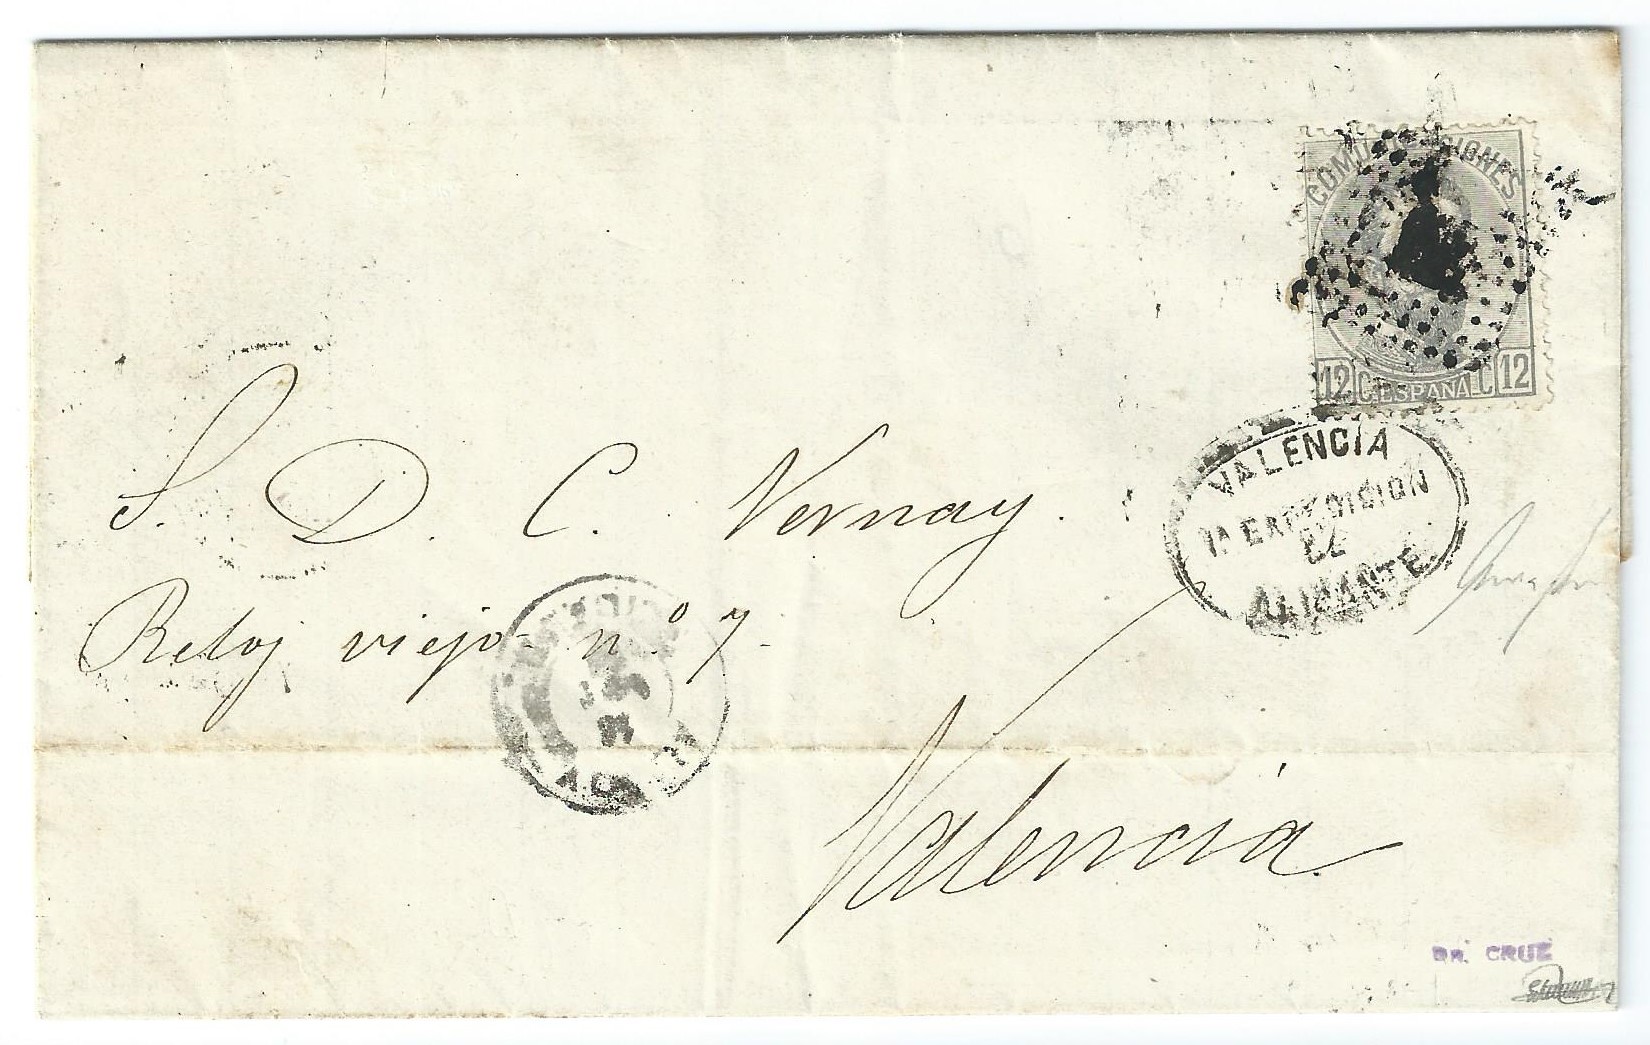 COMUNICACIONES
12 C. ESPAÑA C 12
VALENCIA
1ª EXPEDICION
ALICANTE
S. D. C. Vernay.
Reloj viejo nº 7.
Valencia.
DR. CRUZ